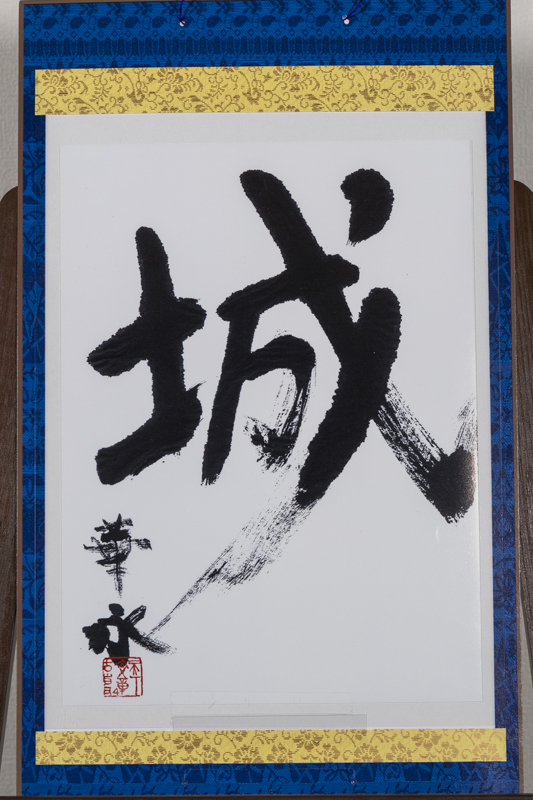 城
華永